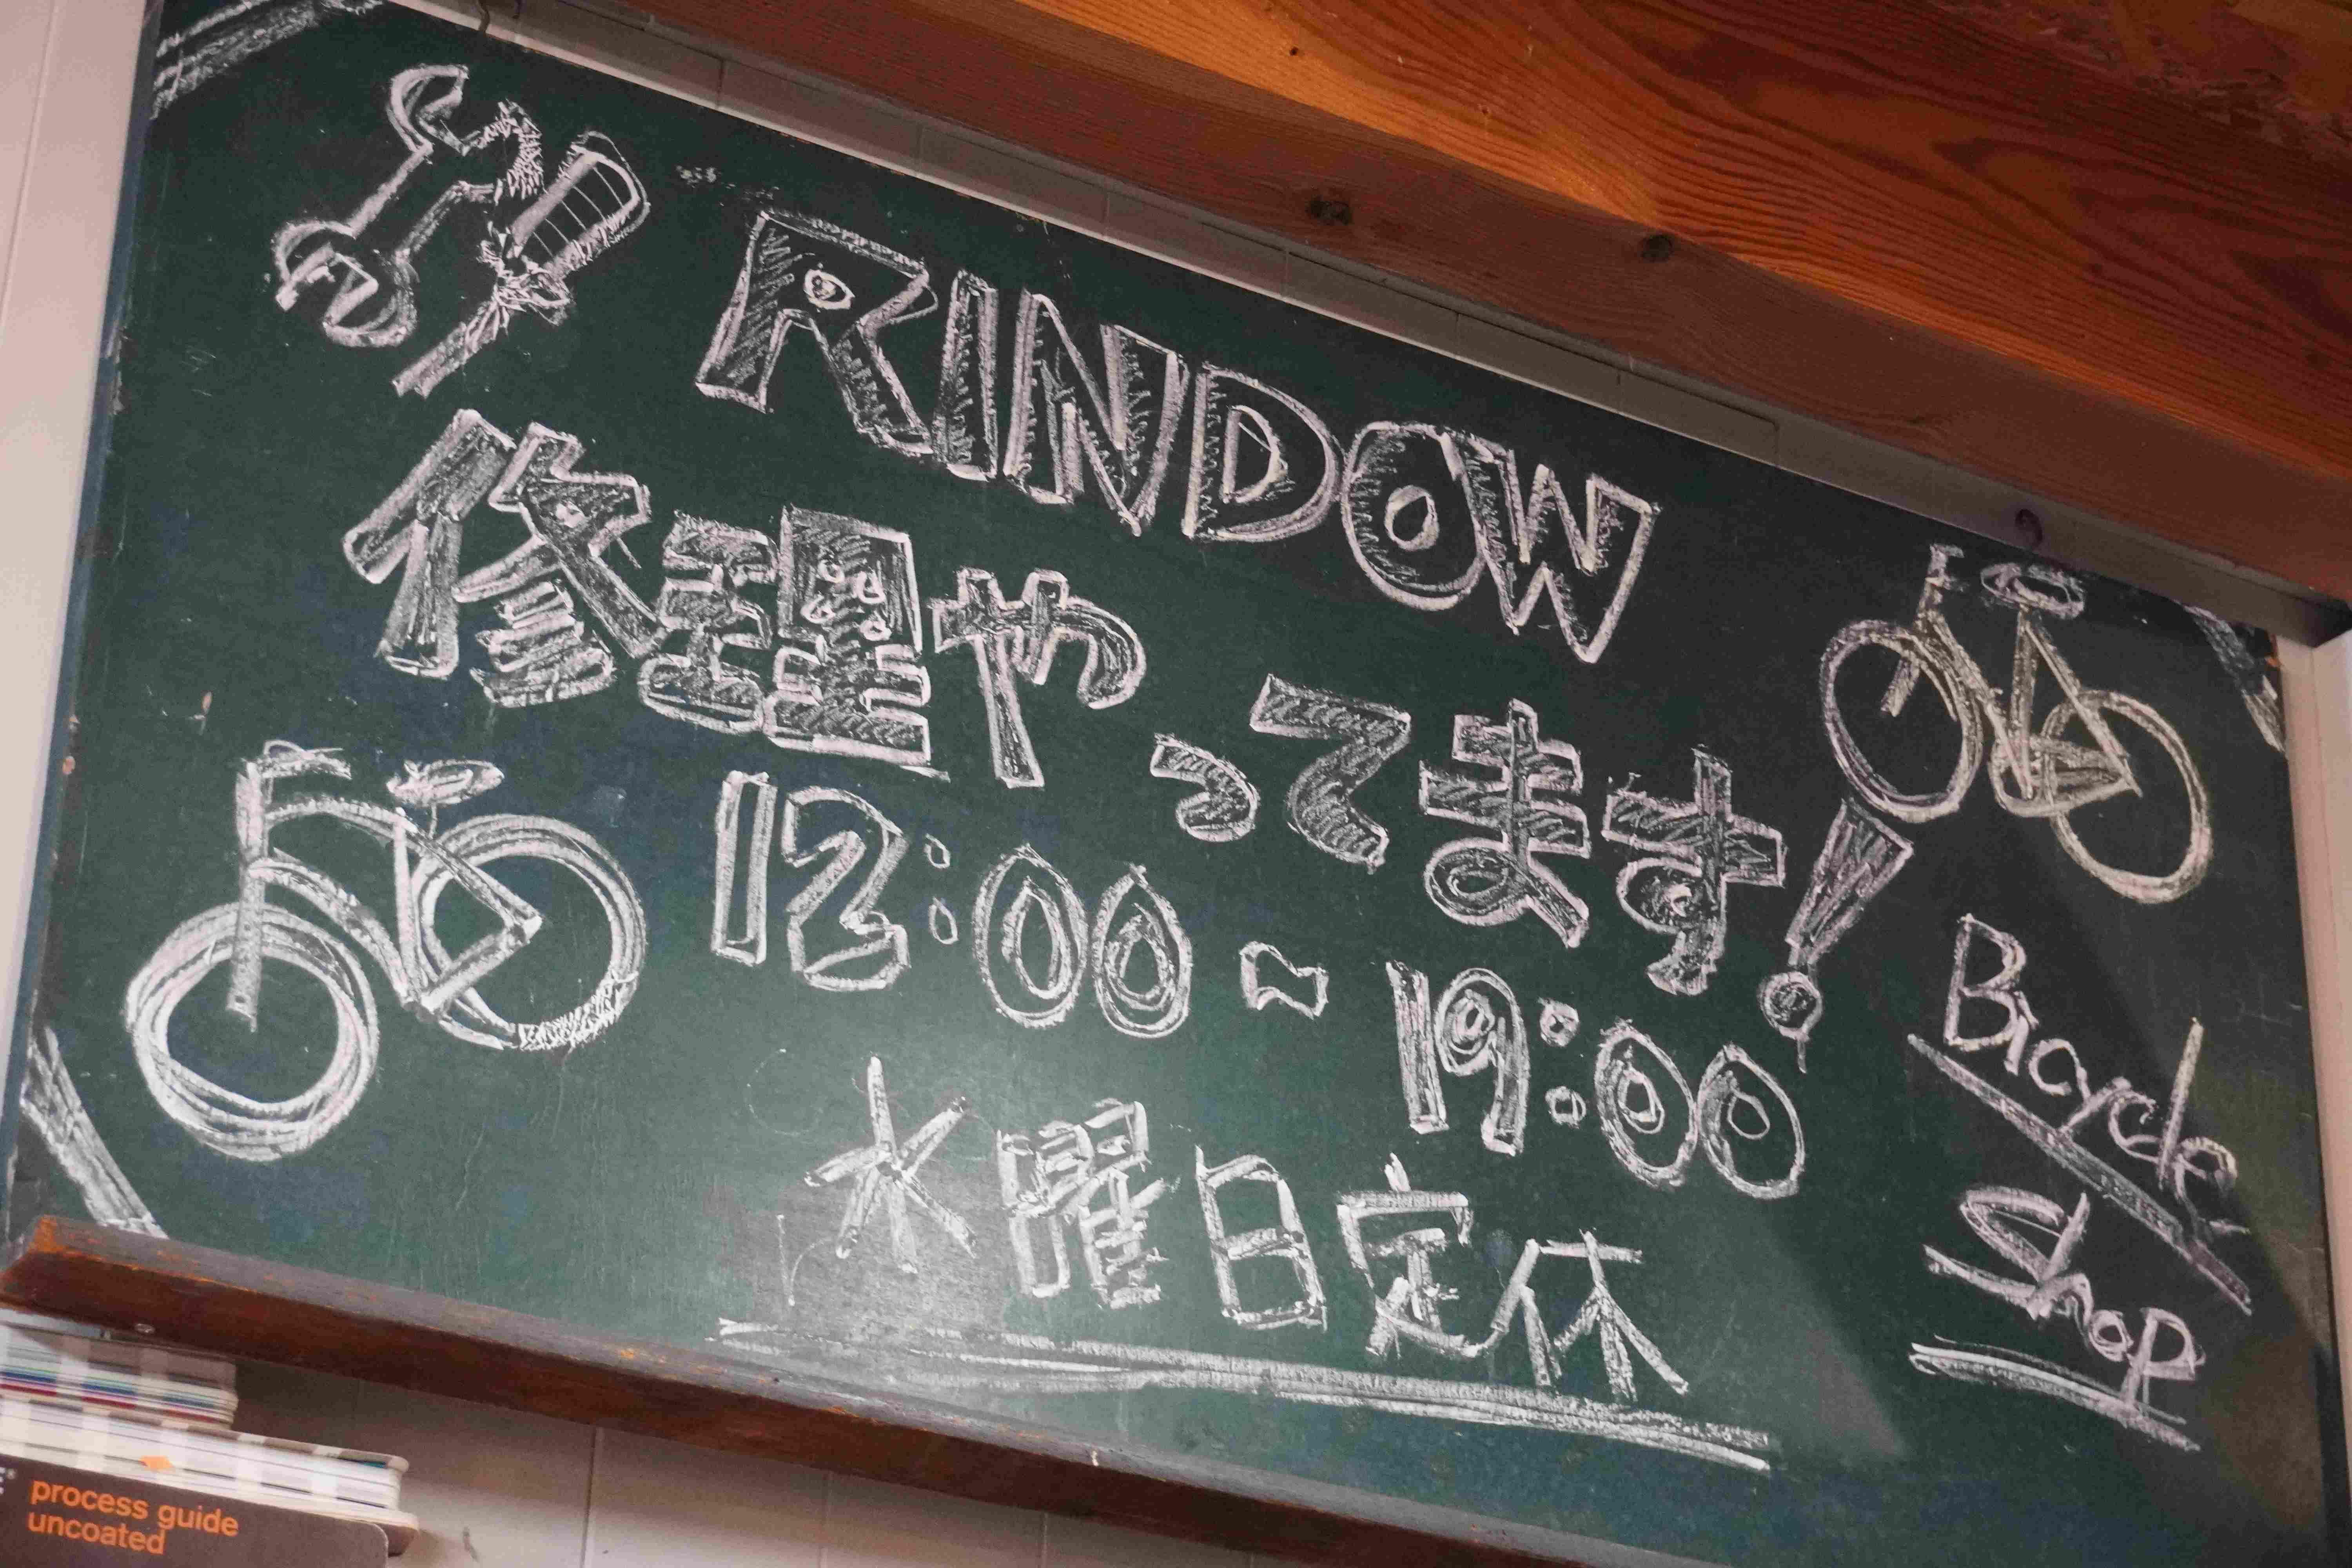 RINDOW
修理やってます!
12:00~19:00
水曜日定休
Bicycle
Shop
process guide
uncoated